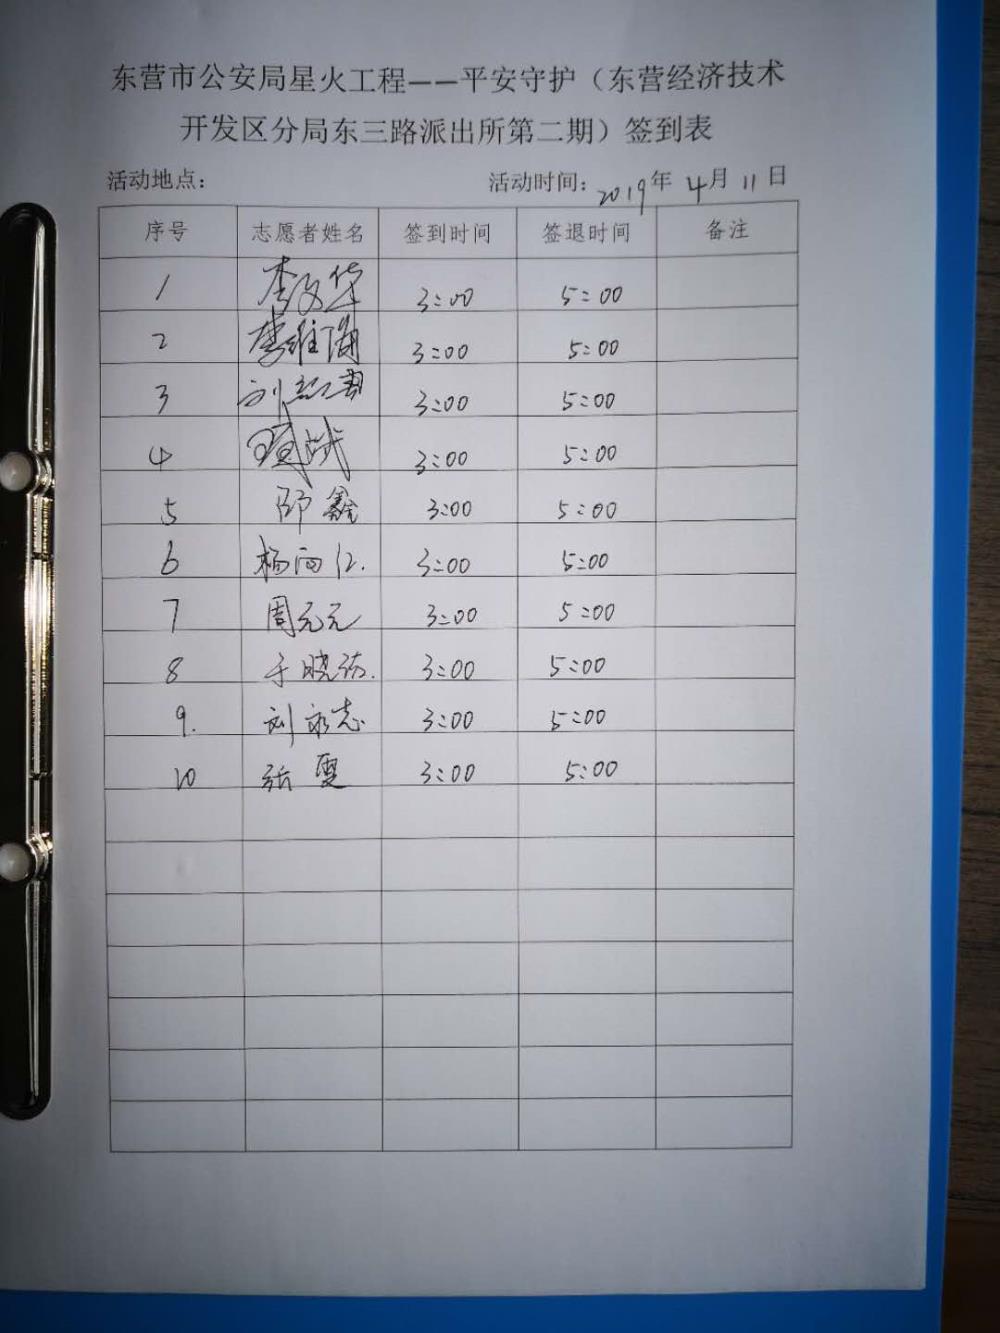 东营市公安局星火工程——平安守护（东营经济技术
开发区分局东三路派出所第二期）签到表
活动地点： 活动时间：2019年 4月 11日
序号 志愿者姓名 签到时间 签退时间 备注
1 李文华 3:00 5:00
2 3:00 5:00
3 刘红君 3:00 5:00
4 3:00 5:00
5 邵鑫 3:00 5:00
6 杨雨江. 3:00 5:00
7 周元元 3:00 5:00
8 于晓 3:00 5:00
9. 刘永志 3:00 5:00
10 张雯 3:00 5:00